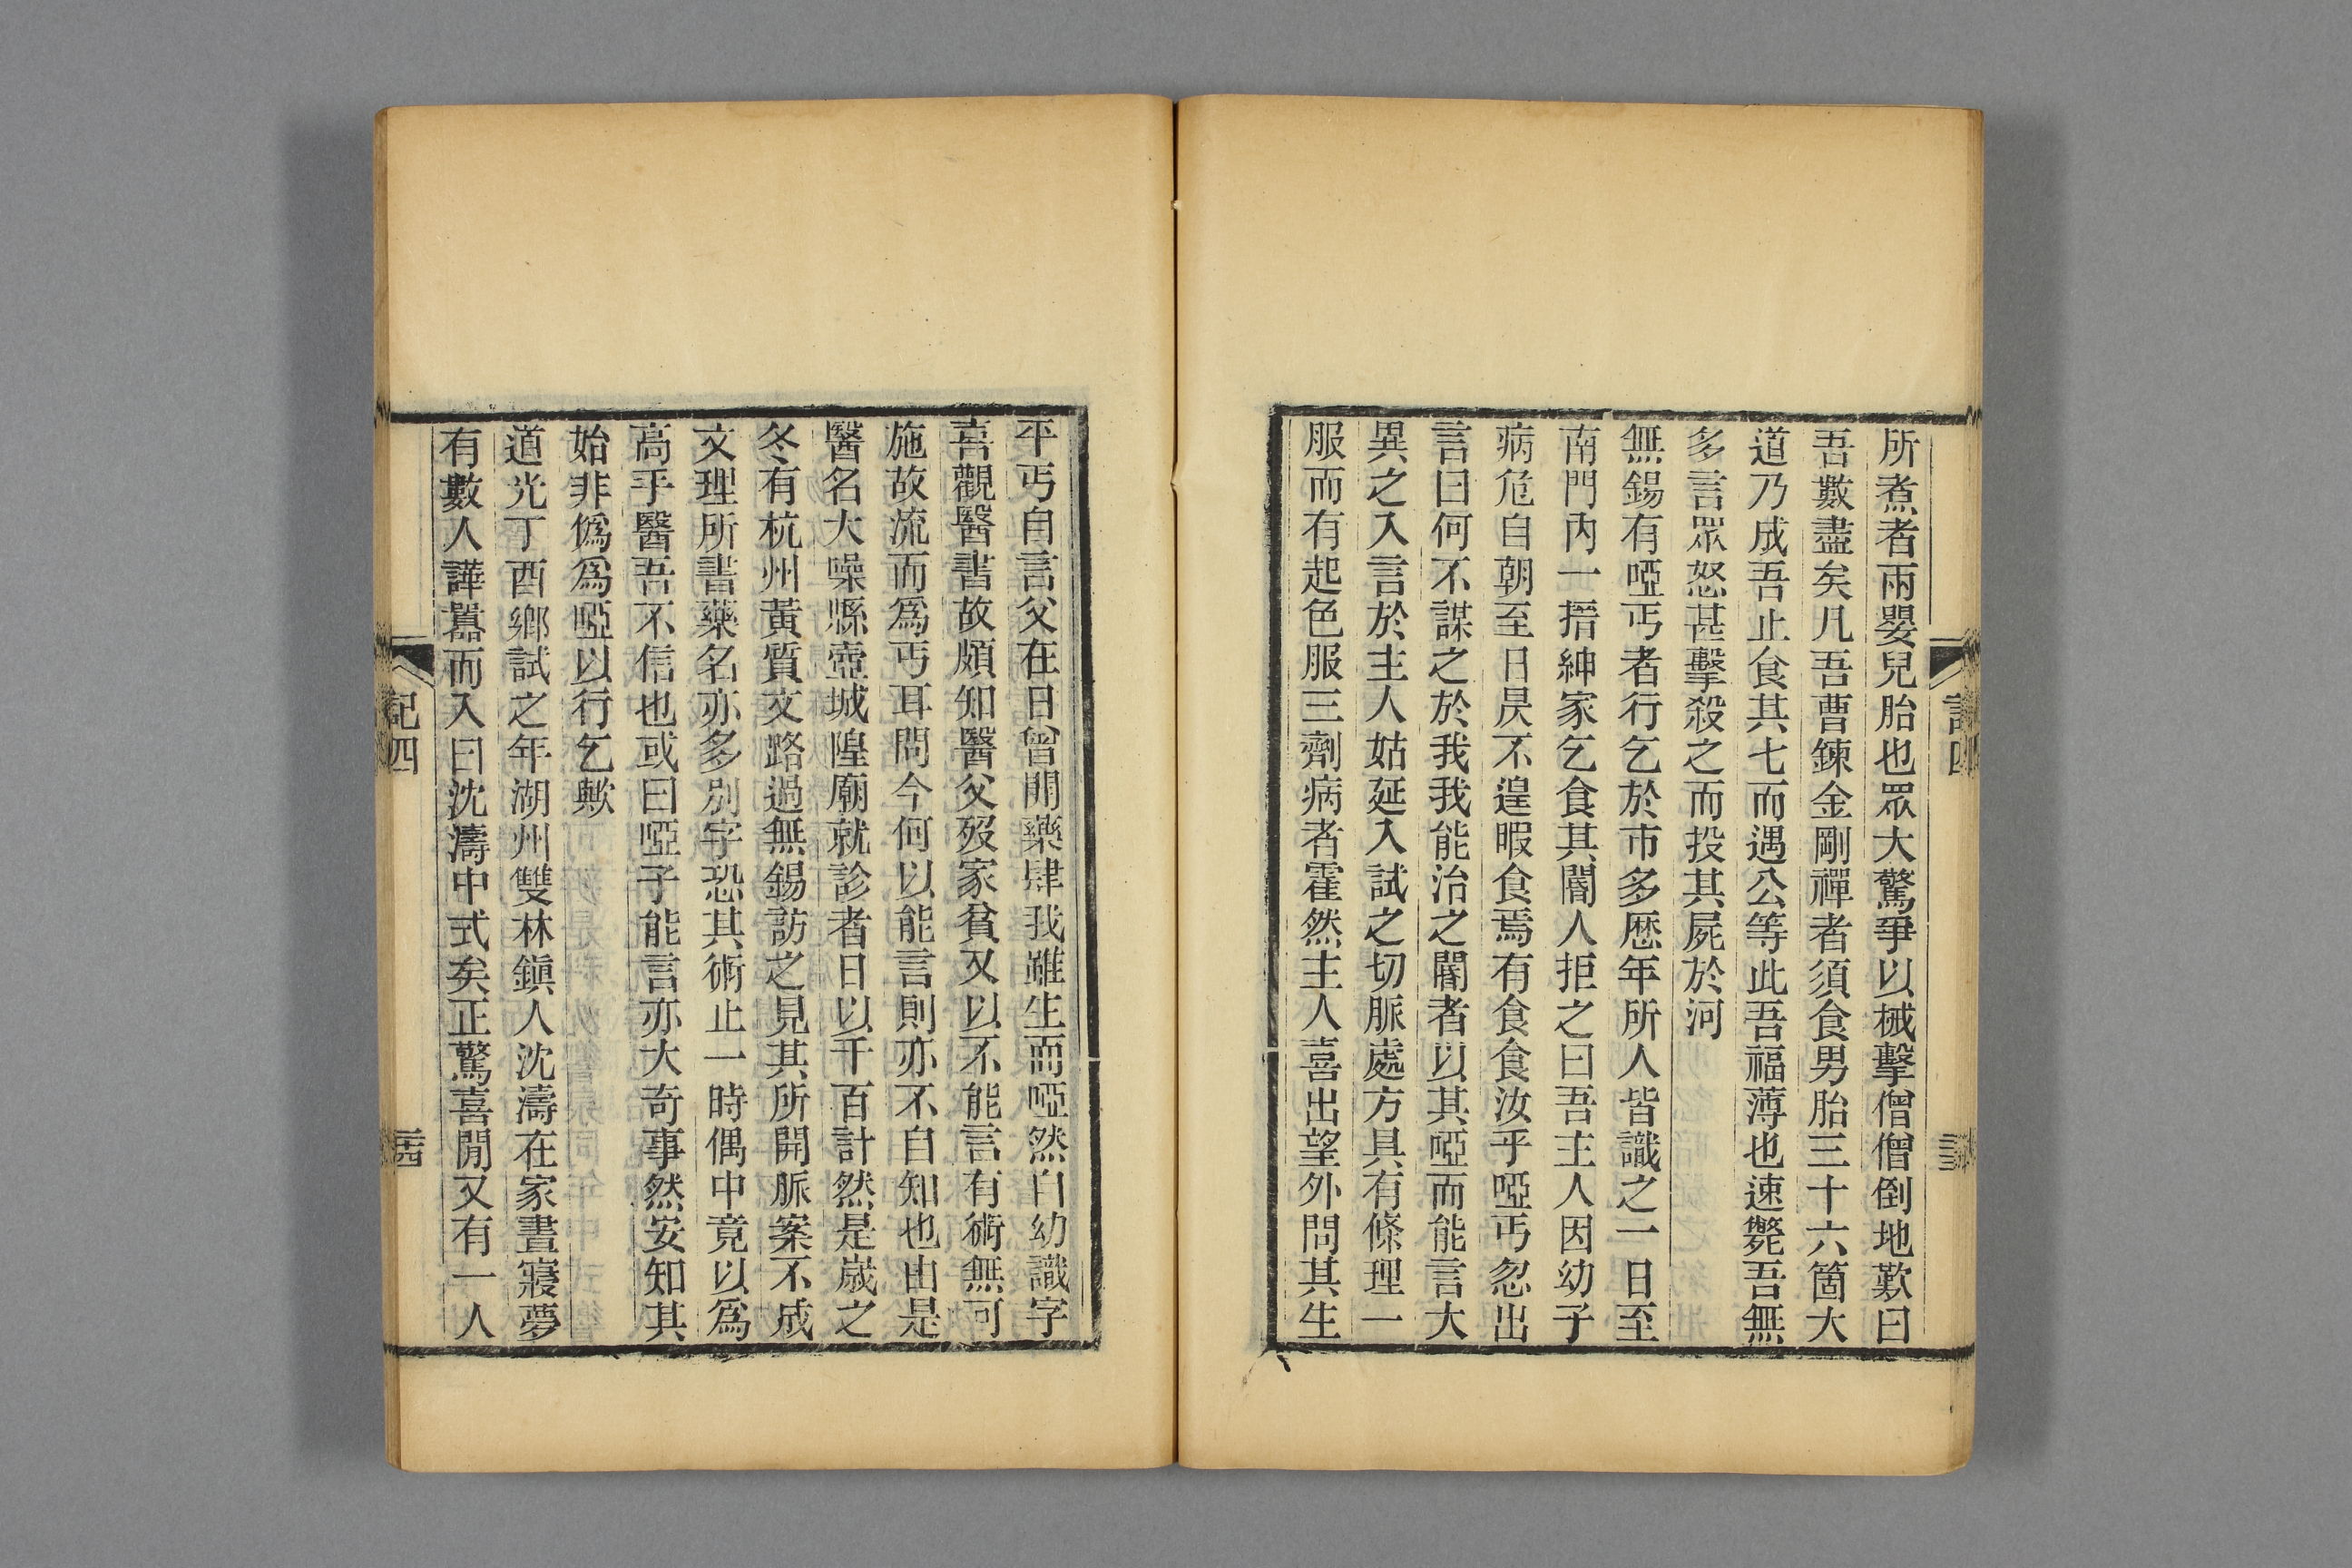 所煮者兩嬰兒胎也眾大驚爭以械擊僧僧倒地歎曰
吾數盡矣凡吾曹鍊金剛禪者須食男胎三十六箇大
道乃成吾止食其七而遇公等此吾福薄也速斃吾無
多言眾怒甚擊殺之而投其屍於河
無錫有啞丐者行乞於市多歷年所人皆識之一日至
南門內一搢紳家乞食其閽人拒之曰吾主人因幼子
病危自朝至日昃不遑暇食焉有食食汝乎啞丐忽出
言曰何不謀之於我我能治之閽者以其啞而能言大
異之入言於主人姑延入試之切脈處方具有條理一
服而有起色服三劑病者霍然主人喜出望外問其生
平丐自言父在日曾開藥肆我雖生而啞然自幼識字
喜觀醫書故頗知醫父歿家貧又以不能言有術無可
施故流而爲丐耳問今何以能言則亦不自知也由是
醫名大噪縣壺城隍廟就診者日以千百計然是歲之
冬有杭州黃質文路過無錫訪之見其所開脈案不成
文理所書藥名亦多別字恐其術止一時偶中竟以爲
高手醫吾不信也或曰啞子能言亦大奇事然安知其
始非僞爲啞以行乞歟
道光丁酉鄉試之年湖州雙林鎭人沈濤在家晝寢夢
有數人譁囂而入曰沈濤中式矣正驚喜閒又有一人
記四